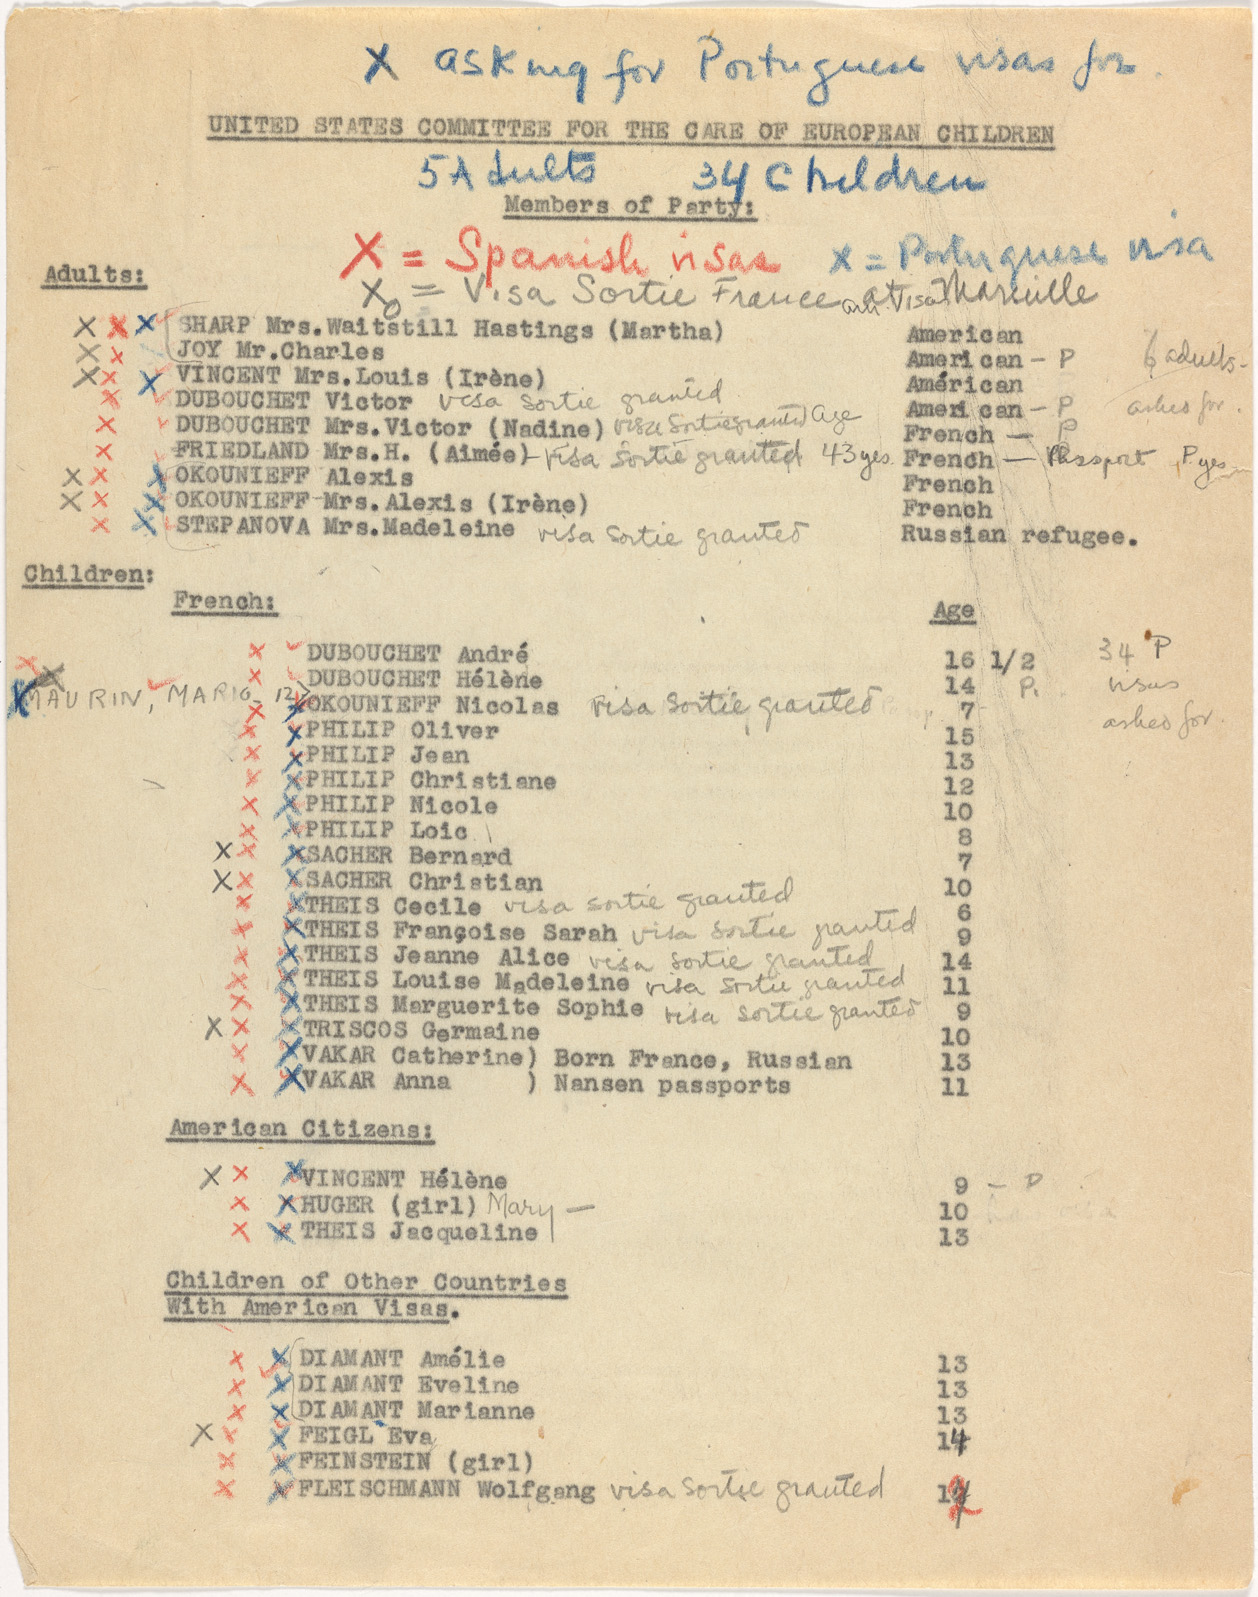 X asking for Portuguese visas for
UNITED STATES COMMITTEE FOR THE CARE OF EUROPEAN CHILDREN
5 Adults 34 Children
Members of Party:
X = Spanish visas x = Portuguese visa
Adults:
X = Visa Sortie France at Marseille
X X X SHARP Mrs.Waitstill Hastings (Martha) American
X x JOY Mr.Charles American - P 6 adults-
X x X VINCENT Mrs.Louis (Irène) Américan
x DUBOUCHET Victor visa sortie granted American - P asked for.
x DUBOUCHET Mrs.Victor (Nadine) visa sortie granted Age French - P
x FRIEDLAND Mrs.H. (Aimée)- visa sortie granted 43 yrs. French - Passport P yes
X x X OKOUNIEFF Alexis French
X x X OKOUNIEFF Mrs.Alexis (Irène) French
x X STEPANOVA Mrs.Madeleine visa sortie granted Russian refugee.
Children:
French: Age
x DUBOUCHET André 16 1/2 34 P
x DUBOUCHET Hélène 14 P. visas
X MAURIN, MARIO, 12 > x OKOUNIEFF Nicolas visa sortie granted 7 asked for.
x x PHILIP Oliver 15
x x PHILIP Jean 13
x x PHILIP Christiane 12
x x PHILIP Nicole 10
x x PHILIP Loic 8
X x x SACHER Bernard 7
X x x SACHER Christian 10
x x THEIS Cecile visa sortie granted 6
x x THEIS Françoise Sarah visa sortie granted 9
x x THEIS Jeanne Alice visa sortie granted 14
x x THEIS Louise Madeleine visa sortie granted 11
x x THEIS Marguerite Sophie visa sortie granted 9
X x x TRISCOS Germaine 10
x X VAKAR Catherine) Born France, Russian 13
x X VAKAR Anna ) Nansen passports 11
American Citizens:
X x x VINCENT Hélène 9 - P
x x HUGER (girl) Mary - 10
x x THEIS Jacqueline 13
Children of Other Countries
With American Visas.
x x DIAMANT Amélie 13
x x DIAMANT Eveline 13
x x DIAMANT Marianne 13
X x x FEIGL Eva 14
x x FEINSTEIN (girl)
x x FLEISCHMANN Wolfgang visa sortie granted 12